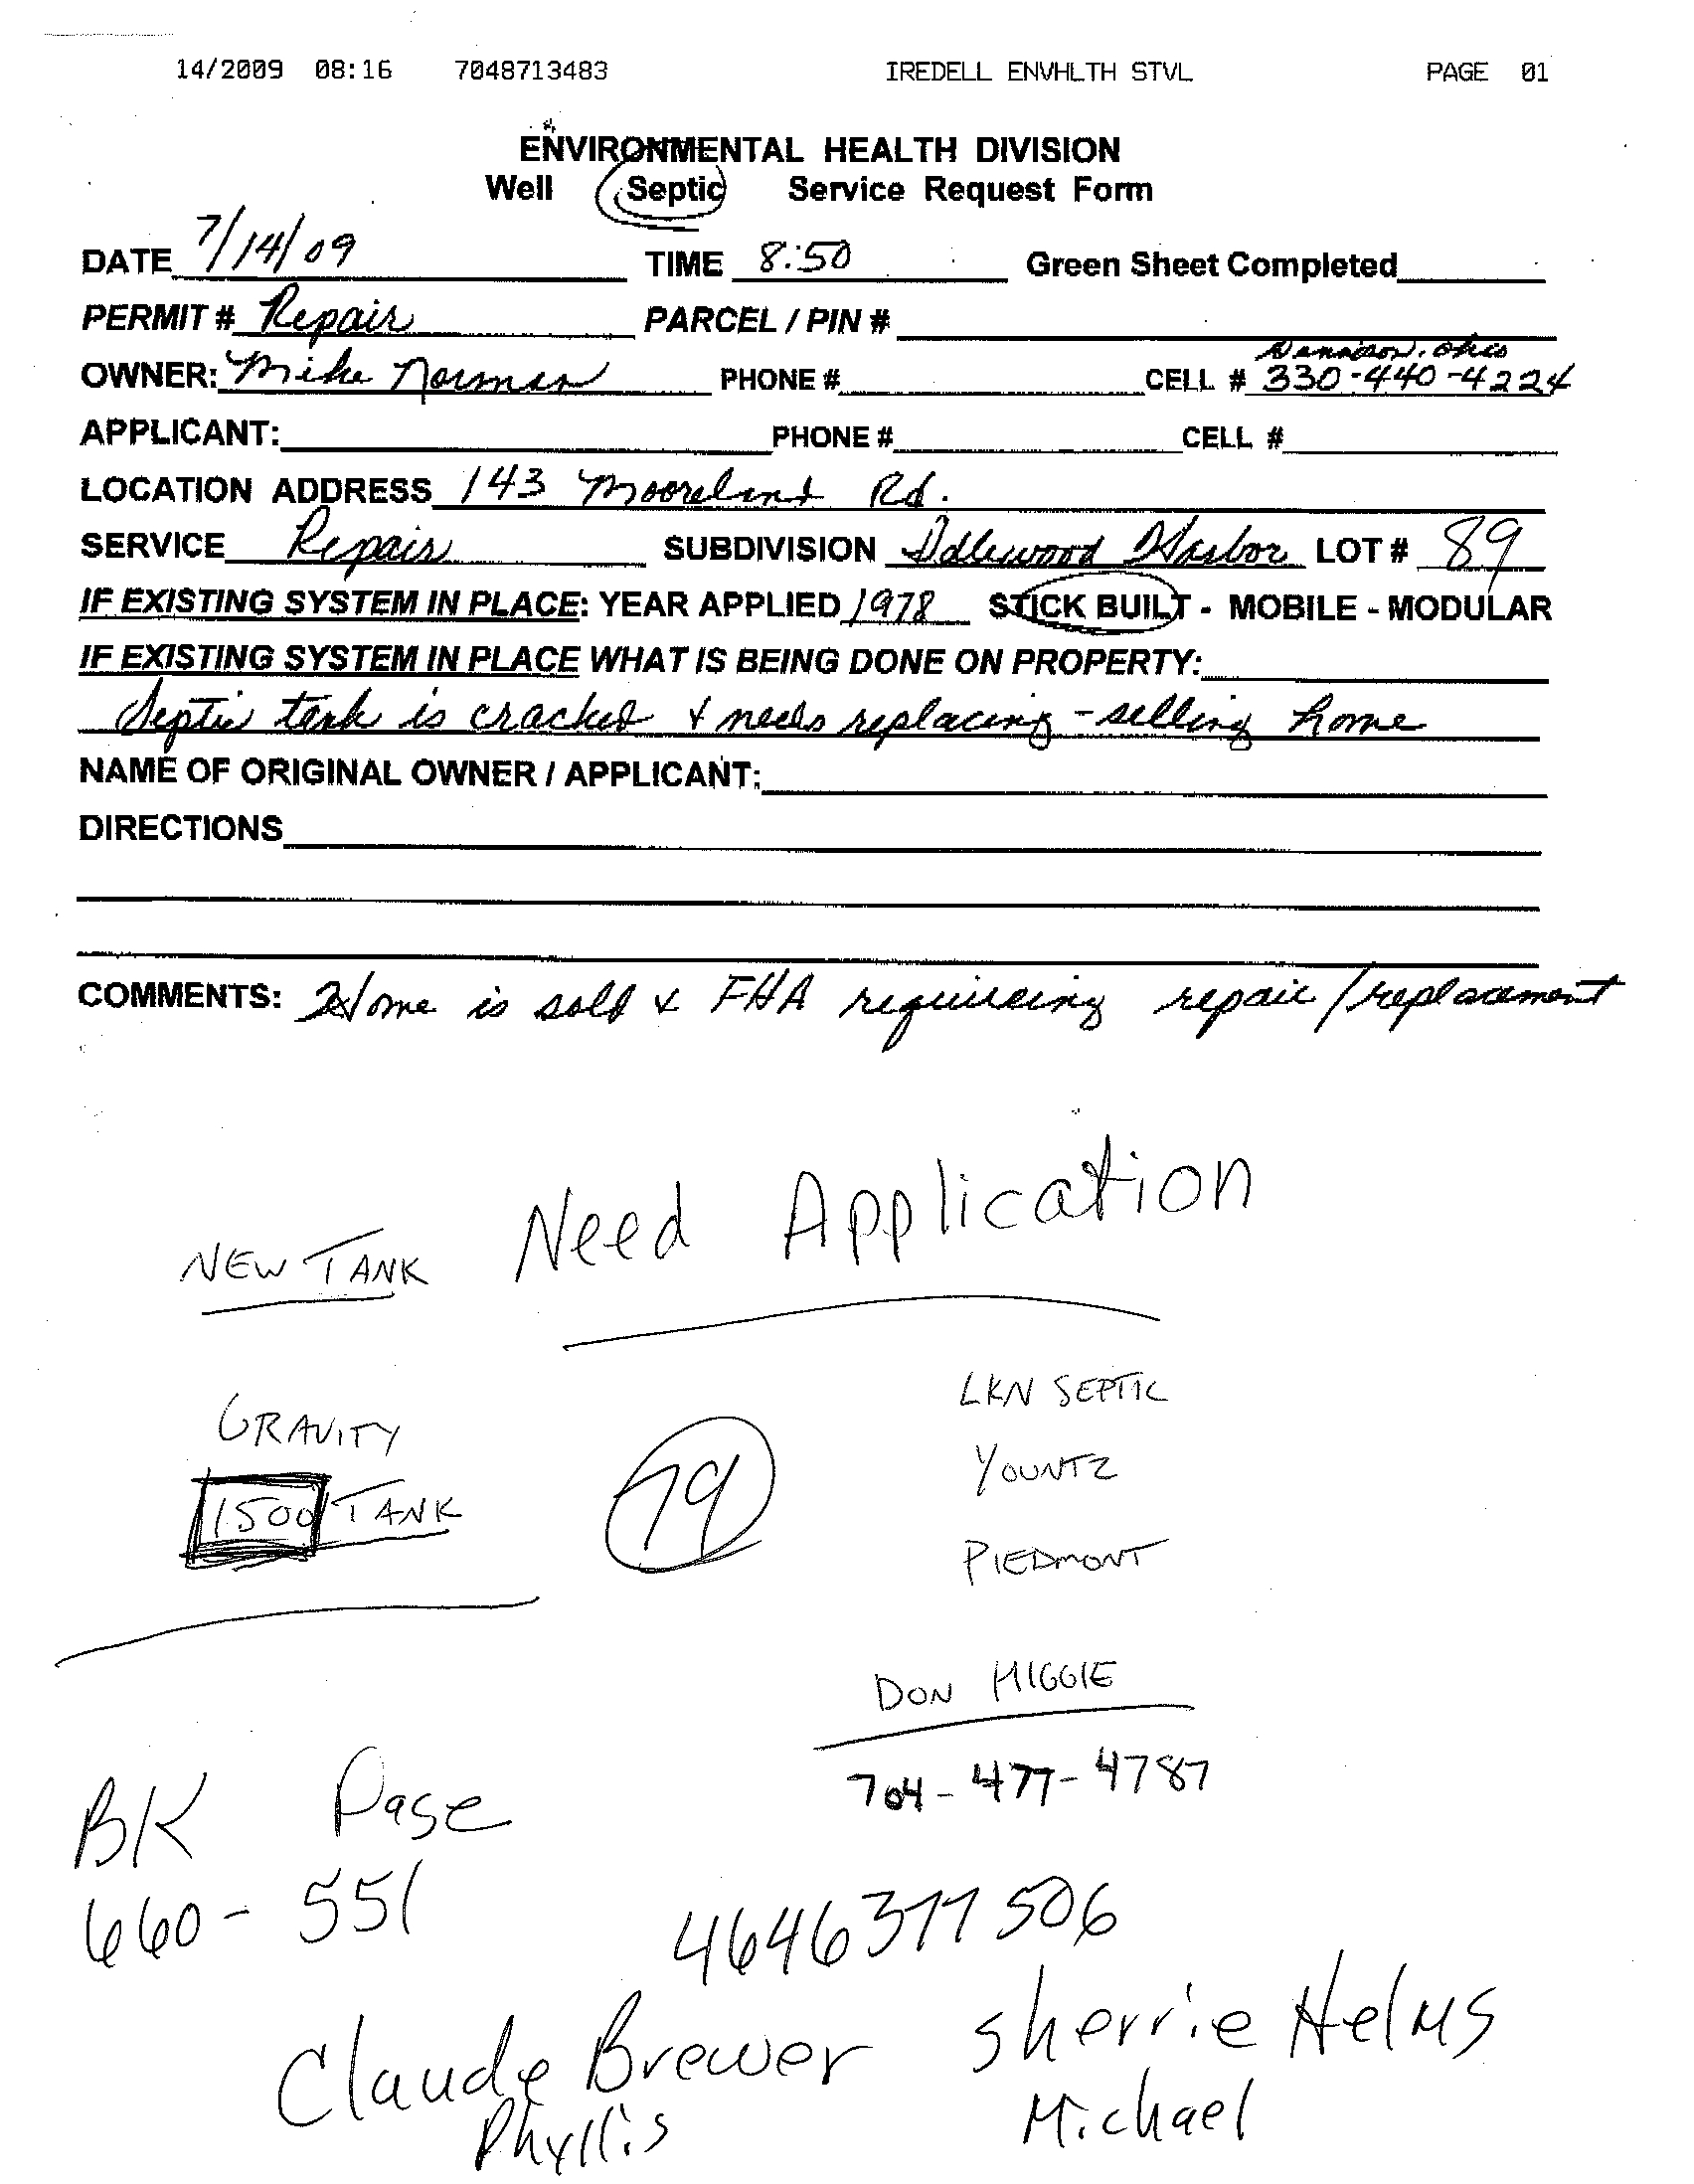 14/2009 08:16 7048713483 IREDELL ENVHLTH STVL PAGE 01
ENVIRONMENTAL HEALTH DIVISION
Well Septic Service Request Form
DATE 7/14/09 TIME 8:50 Green Sheet Completed
PERMIT # Repair PARCEL / PIN #
Dennison, Ohio
OWNER: Mike Norman PHONE # CELL # 330-440-4224
APPLICANT: PHONE # CELL #
LOCATION ADDRESS 143 Mooreland Rd.
SERVICE Repair SUBDIVISION Idlewood Harbor LOT # 89
IF EXISTING SYSTEM IN PLACE: YEAR APPLIED 1978 STICK BUILT - MOBILE - MODULAR
IF EXISTING SYSTEM IN PLACE WHAT IS BEING DONE ON PROPERTY:
Septic tank is cracked & needs replacing - selling home
NAME OF ORIGINAL OWNER / APPLICANT:
DIRECTIONS
COMMENTS: Home is sold & FHA requireing repair / replacement
NEW TANK Need Application
GRAVITY LKN SEPTIC
1500 TANK 79 YOUNTZ
PIEDMONT
DON HIGGIE
704-477-4787
BK Page
660- 551
4646377506
Claude Brewer Sherrie Helms
Phyllis Michael